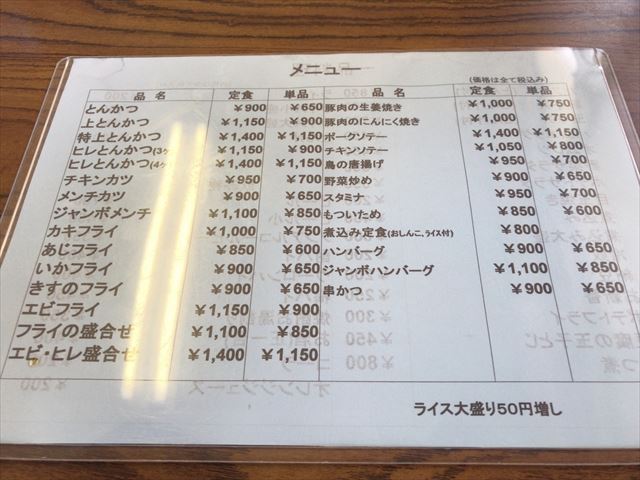 メニュー
(価格は全て税込み)
品 名 定食 単品
とんかつ ¥900 ¥650
上とんかつ ¥1,150 ¥900
特上とんかつ ¥1,400 ¥1,150
ヒレとんかつ(3ヶ ¥1,150 ¥900
ヒレとんかつ(4ヶ ¥1,400 ¥1,150
チキンカツ ¥950 ¥700
メンチカツ ¥900 ¥650
ジャンボメンチ ¥1,100 ¥850
カキフライ ¥1,000 ¥750
あじフライ ¥850 ¥600
いかフライ ¥900 ¥650
きすのフライ ¥900 ¥650
エビフライ ¥1,150 ¥900
フライの盛合せ ¥1,100 ¥850
エビ・ヒレ盛合せ ¥1,400 ¥1,150
品 名 定食 単品
豚肉の生姜焼き ¥1,000 ¥750
豚肉のにんにく焼き ¥1,000 ¥750
ポークソテー ¥1,400 ¥1,150
チキンソテー ¥1,050 ¥800
鳥の唐揚げ ¥950 ¥700
野菜炒め ¥900 ¥650
スタミナ ¥950 ¥700
もついため ¥850 ¥600
煮込み定食(おしんこ、ライス付) ¥800
ハンバーグ ¥900 ¥650
ジャンボハンバーグ ¥1,100 ¥850
串かつ ¥900 ¥650
ライス大盛り50円増し